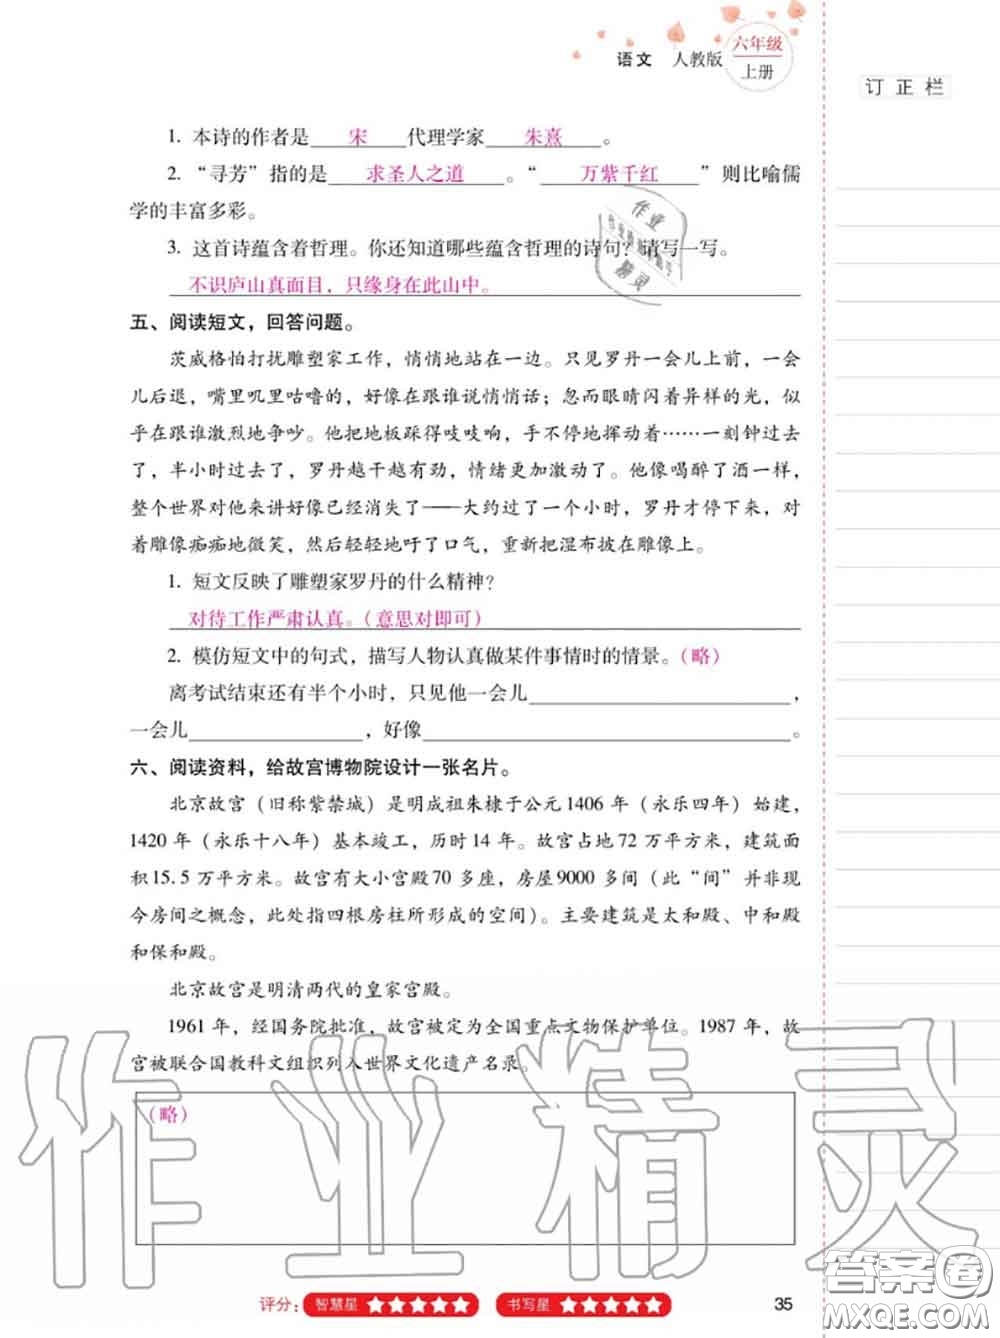 语文 人教版 六年级
上册
订正栏
1. 本诗的作者是 宋 代理学家 朱熹 。
2. “寻芳”指的是 求圣人之道 。“ 万紫千红 ”则比喻儒
学的丰富多彩。
3. 这首诗蕴含着哲理。你还知道哪些蕴含哲理的诗句？请写一写。
不识庐山真面目，只缘身在此山中。
五、阅读短文，回答问题。
茨威格怕打扰雕塑家工作，悄悄地站在一边。只见罗丹一会儿上前，一会
儿后退，嘴里叽里咕噜的，好像在跟谁说悄悄话；忽而眼睛闪着异样的光，似
乎在跟谁激烈地争吵。他把地板踩得吱吱响，手不停地挥动着……一刻钟过去
了，半小时过去了，罗丹越干越有劲，情绪更加激动了。他像喝醉了酒一样，
整个世界对他来讲好像已经消失了——大约过了一个小时，罗丹才停下来，对
着雕像痴痴地微笑，然后轻轻地吁了口气，重新把湿布披在雕像上。
1. 短文反映了雕塑家罗丹的什么精神？
对待工作严肃认真。（意思对即可）
2. 模仿短文中的句式，描写人物认真做某件事情时的情景。（略）
离考试结束还有半个小时，只见他一会儿 ，
一会儿 ，好像 。
六、阅读资料，给故宫博物院设计一张名片。
北京故宫（旧称紫禁城）是明成祖朱棣于公元1406 年（永乐四年）始建，
1420 年（永乐十八年）基本竣工，历时 14 年。故宫占地 72 万平方米，建筑面
积15.5 万平方米。故宫有大小宫殿70 多座，房屋9000 多间（此“间”并非现
今房间之概念，此处指四根房柱所形成的空间）。主要建筑是太和殿、中和殿
和保和殿。
北京故宫是明清两代的皇家宫殿。
1961 年，经国务院批准，故宫被定为全国重点文物保护单位。1987 年，故
宫被联合国教科文组织列入世界文化遗产名录。
（略）
作业精灵
评分： 智慧星 ★★★★★ 书写星 ★★★★★
35
答案卷
MXQE.COM